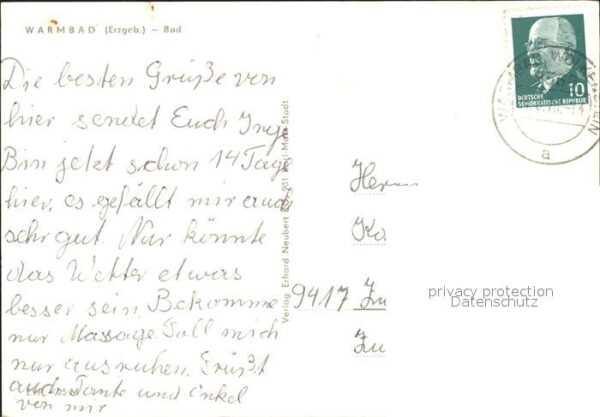 WARMBAD (Erzgeb.) – Bad
Die besten Grüße von
hier sendet Euch Inge
Bin jetzt schon 14 Tage
hier, es gefällt mir auch
sehr gut. Nur könnte
das Wetter etwas
besser sein. Bekomme
nur Massage. Soll mich
nur ausruhen. Grüßt
auch Tante und Onkel
von mir
Verlag Erhard Neubert KG, 901 Karl-Marx-Stadt
10
DEUTSCHE
DEMOKRATISCHE REPUBLIK
a
Herrn
9417
privacy protection
Datenschutz